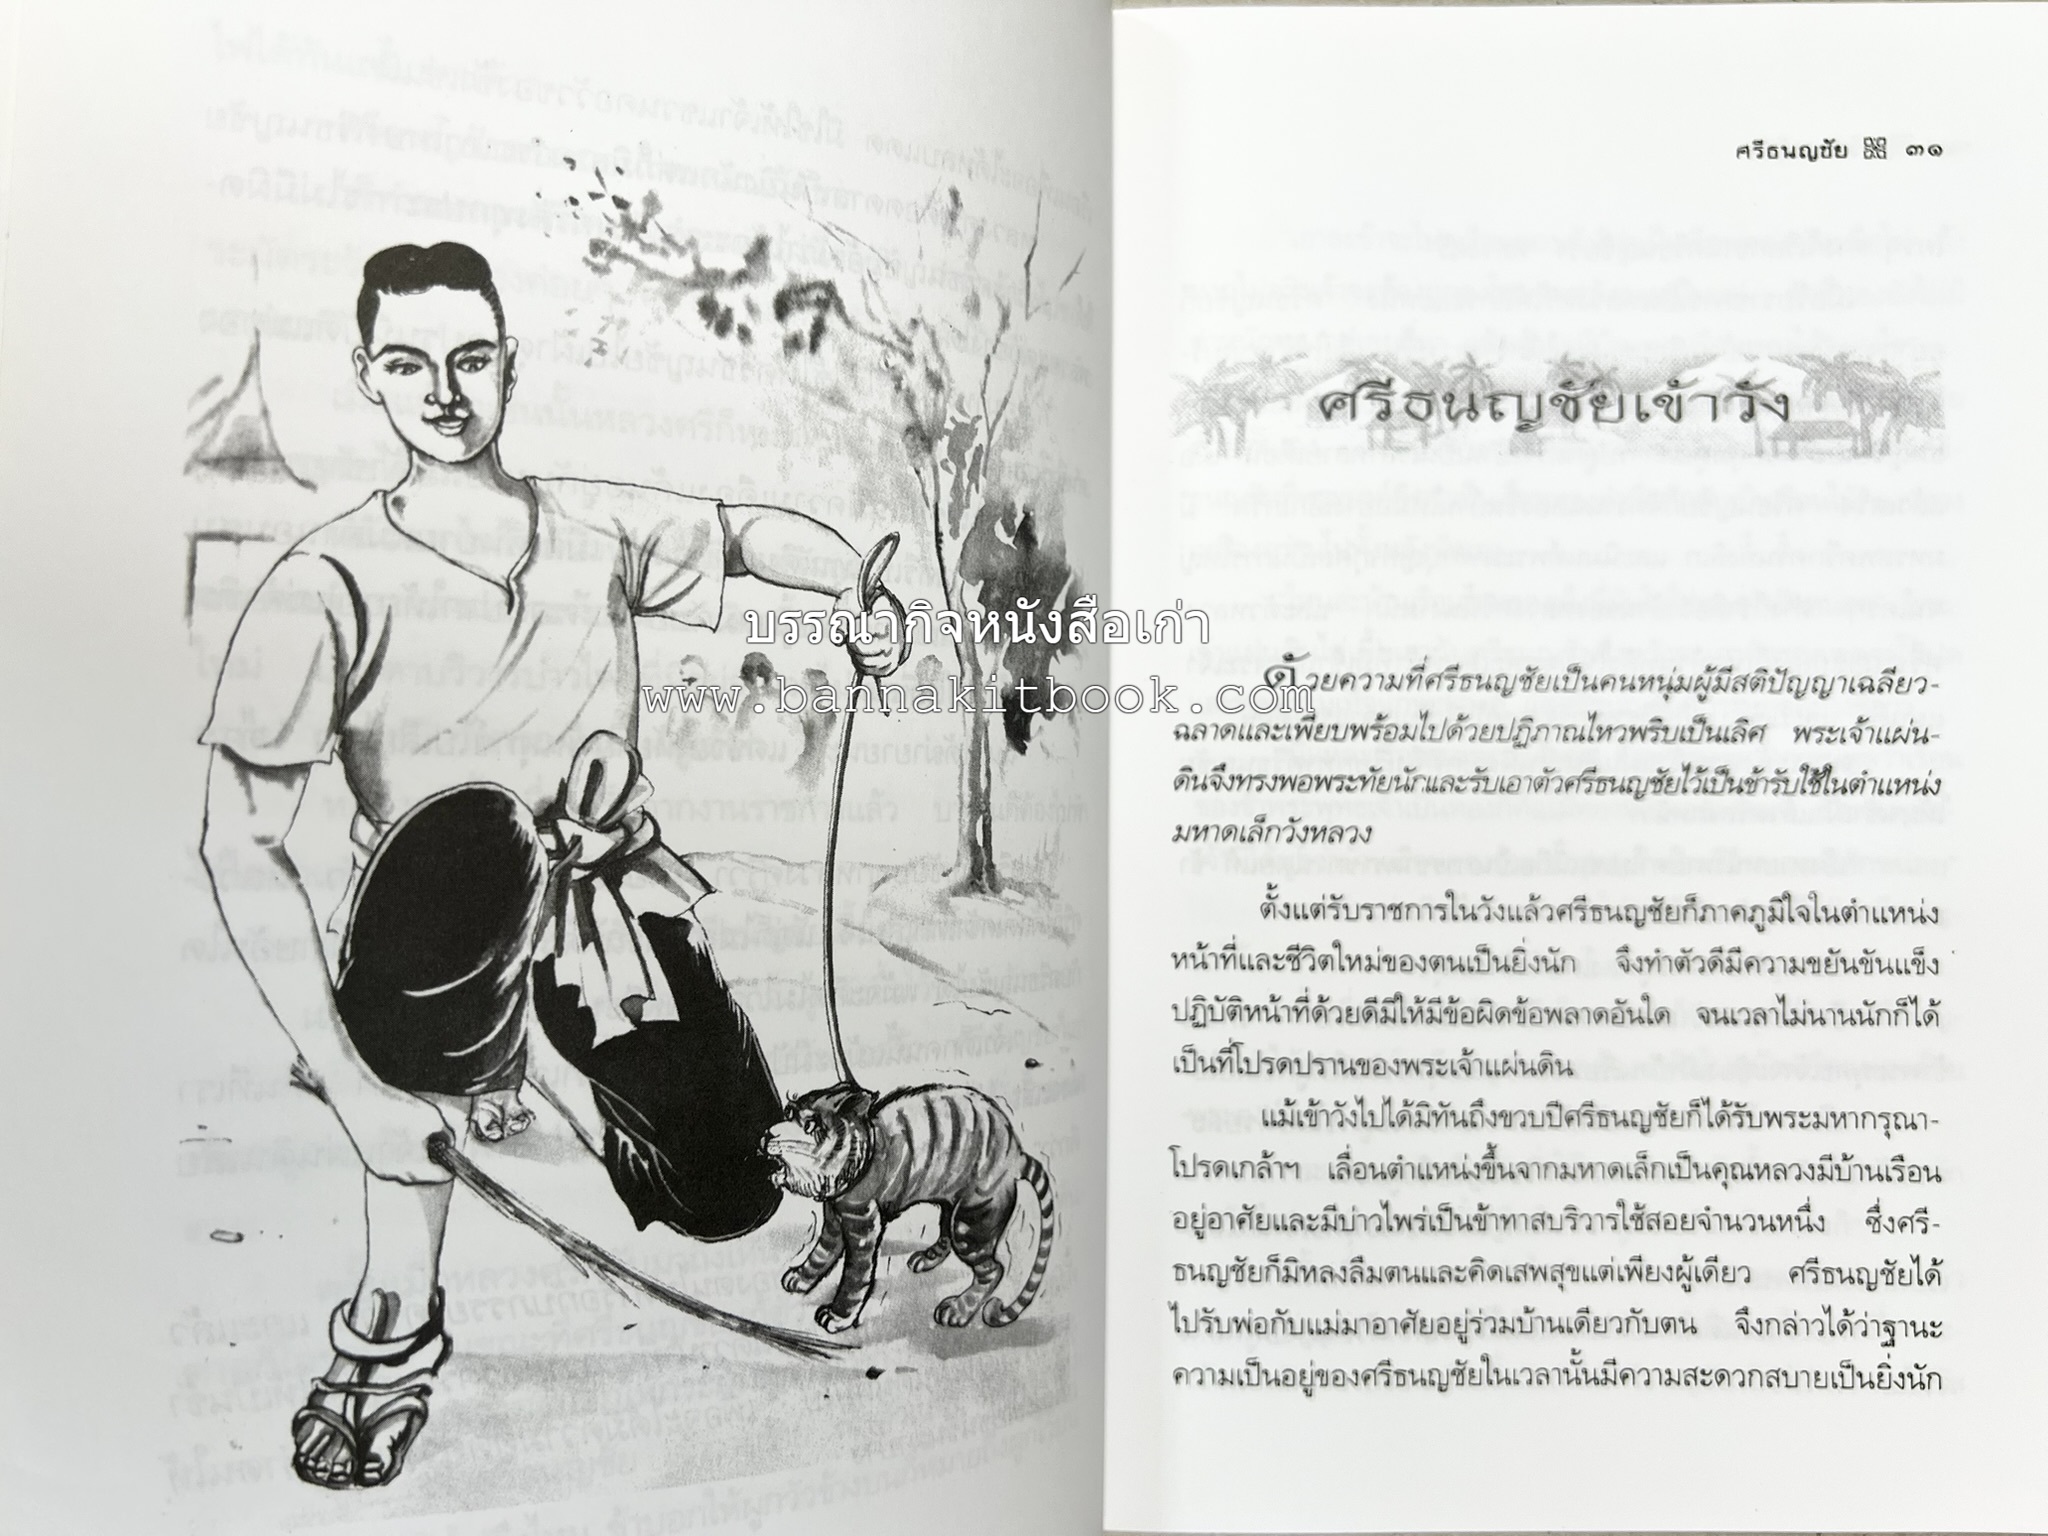 ศรีธนญชัย ๓๑
ศรีธนญชัยเข้าวัง
บรรณากิจหนังสือเก่า
www.bannakitbook.com
ด้วยความที่ศรีธนญชัยเป็นคนหนุ่มผู้มีสติปัญญาเฉลียว-
ฉลาดและเพียบพร้อมไปด้วยปฏิภาณไหวพริบเป็นเลิศ พระเจ้าแผ่น-
ดินจึงทรงพอพระทัยนักและรับเอาตัวศรีธนญชัยไว้เป็นข้ารับใช้ในตำแหน่ง
มหาดเล็กวังหลวง
ตั้งแต่รับราชการในวังแล้วศรีธนญชัยก็ภาคภูมิใจในตำแหน่ง
หน้าที่และชีวิตใหม่ของตนเป็นยิ่งนัก จึงทำตัวดีมีความขยันขันแข็ง
ปฏิบัติหน้าที่ด้วยดีมิให้มีข้อผิดข้อพลาดอันใด จนเวลาไม่นานนักก็ได้
เป็นที่โปรดปรานของพระเจ้าแผ่นดิน
แม้เข้าวังไปได้มิทันถึงขวบปีศรีธนญชัยก็ได้รับพระมหากรุณา-
โปรดเกล้าฯ เลื่อนตำแหน่งขึ้นจากมหาดเล็กเป็นคุณหลวงมีบ้านเรือน
อยู่อาศัยและมีบ่าวไพร่เป็นข้าทาสบริวารใช้สอยจำนวนหนึ่ง ซึ่งศรี-
ธนญชัยก็มิหลงลืมตนและคิดเสพสุขแต่เพียงผู้เดียว ศรีธนญชัยได้
ไปรับพ่อกับแม่มาอาศัยอยู่ร่วมบ้านเดียวกับตน จึงกล่าวได้ว่าฐานะ
ความเป็นอยู่ของศรีธนญชัยในเวลานั้นมีความสะดวกสบายเป็นยิ่งนัก